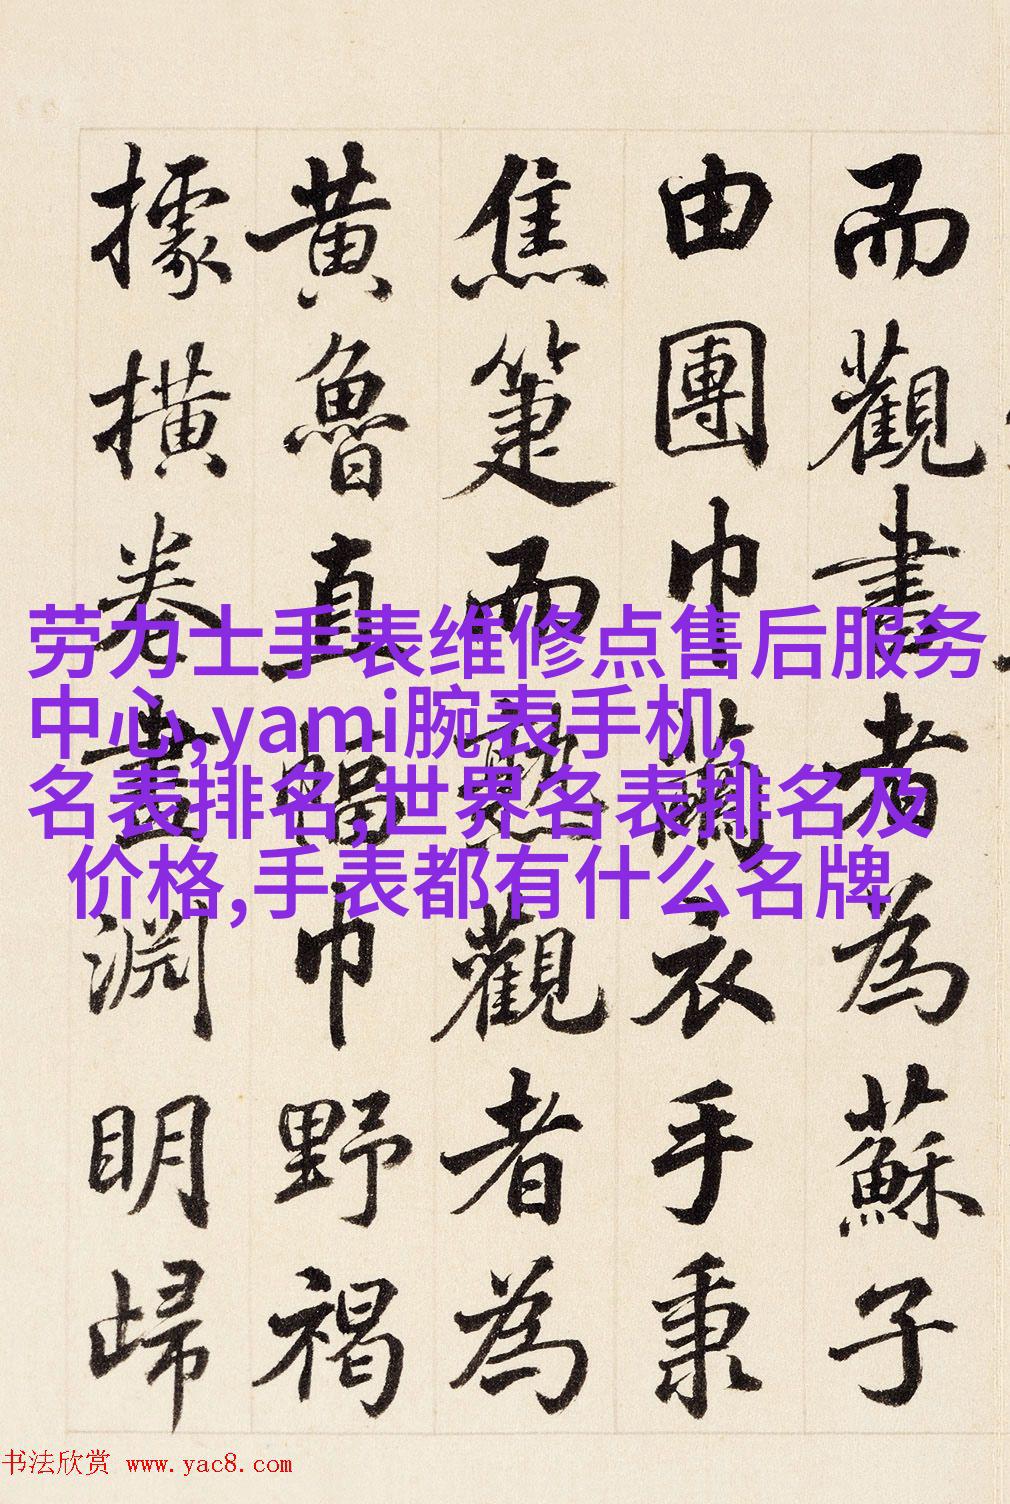 而觀書者為蘇子
由團巾繭衣手秉
焦箑而熟觀者為
黄魯直幅巾野褐
據横卷畫淵明歸
劳力士手表维修点售后服务
中心,yami腕表手机,
名表排名,世界名表排名及
价格,手表都有什么名牌
书法欣赏 www.yac8.com